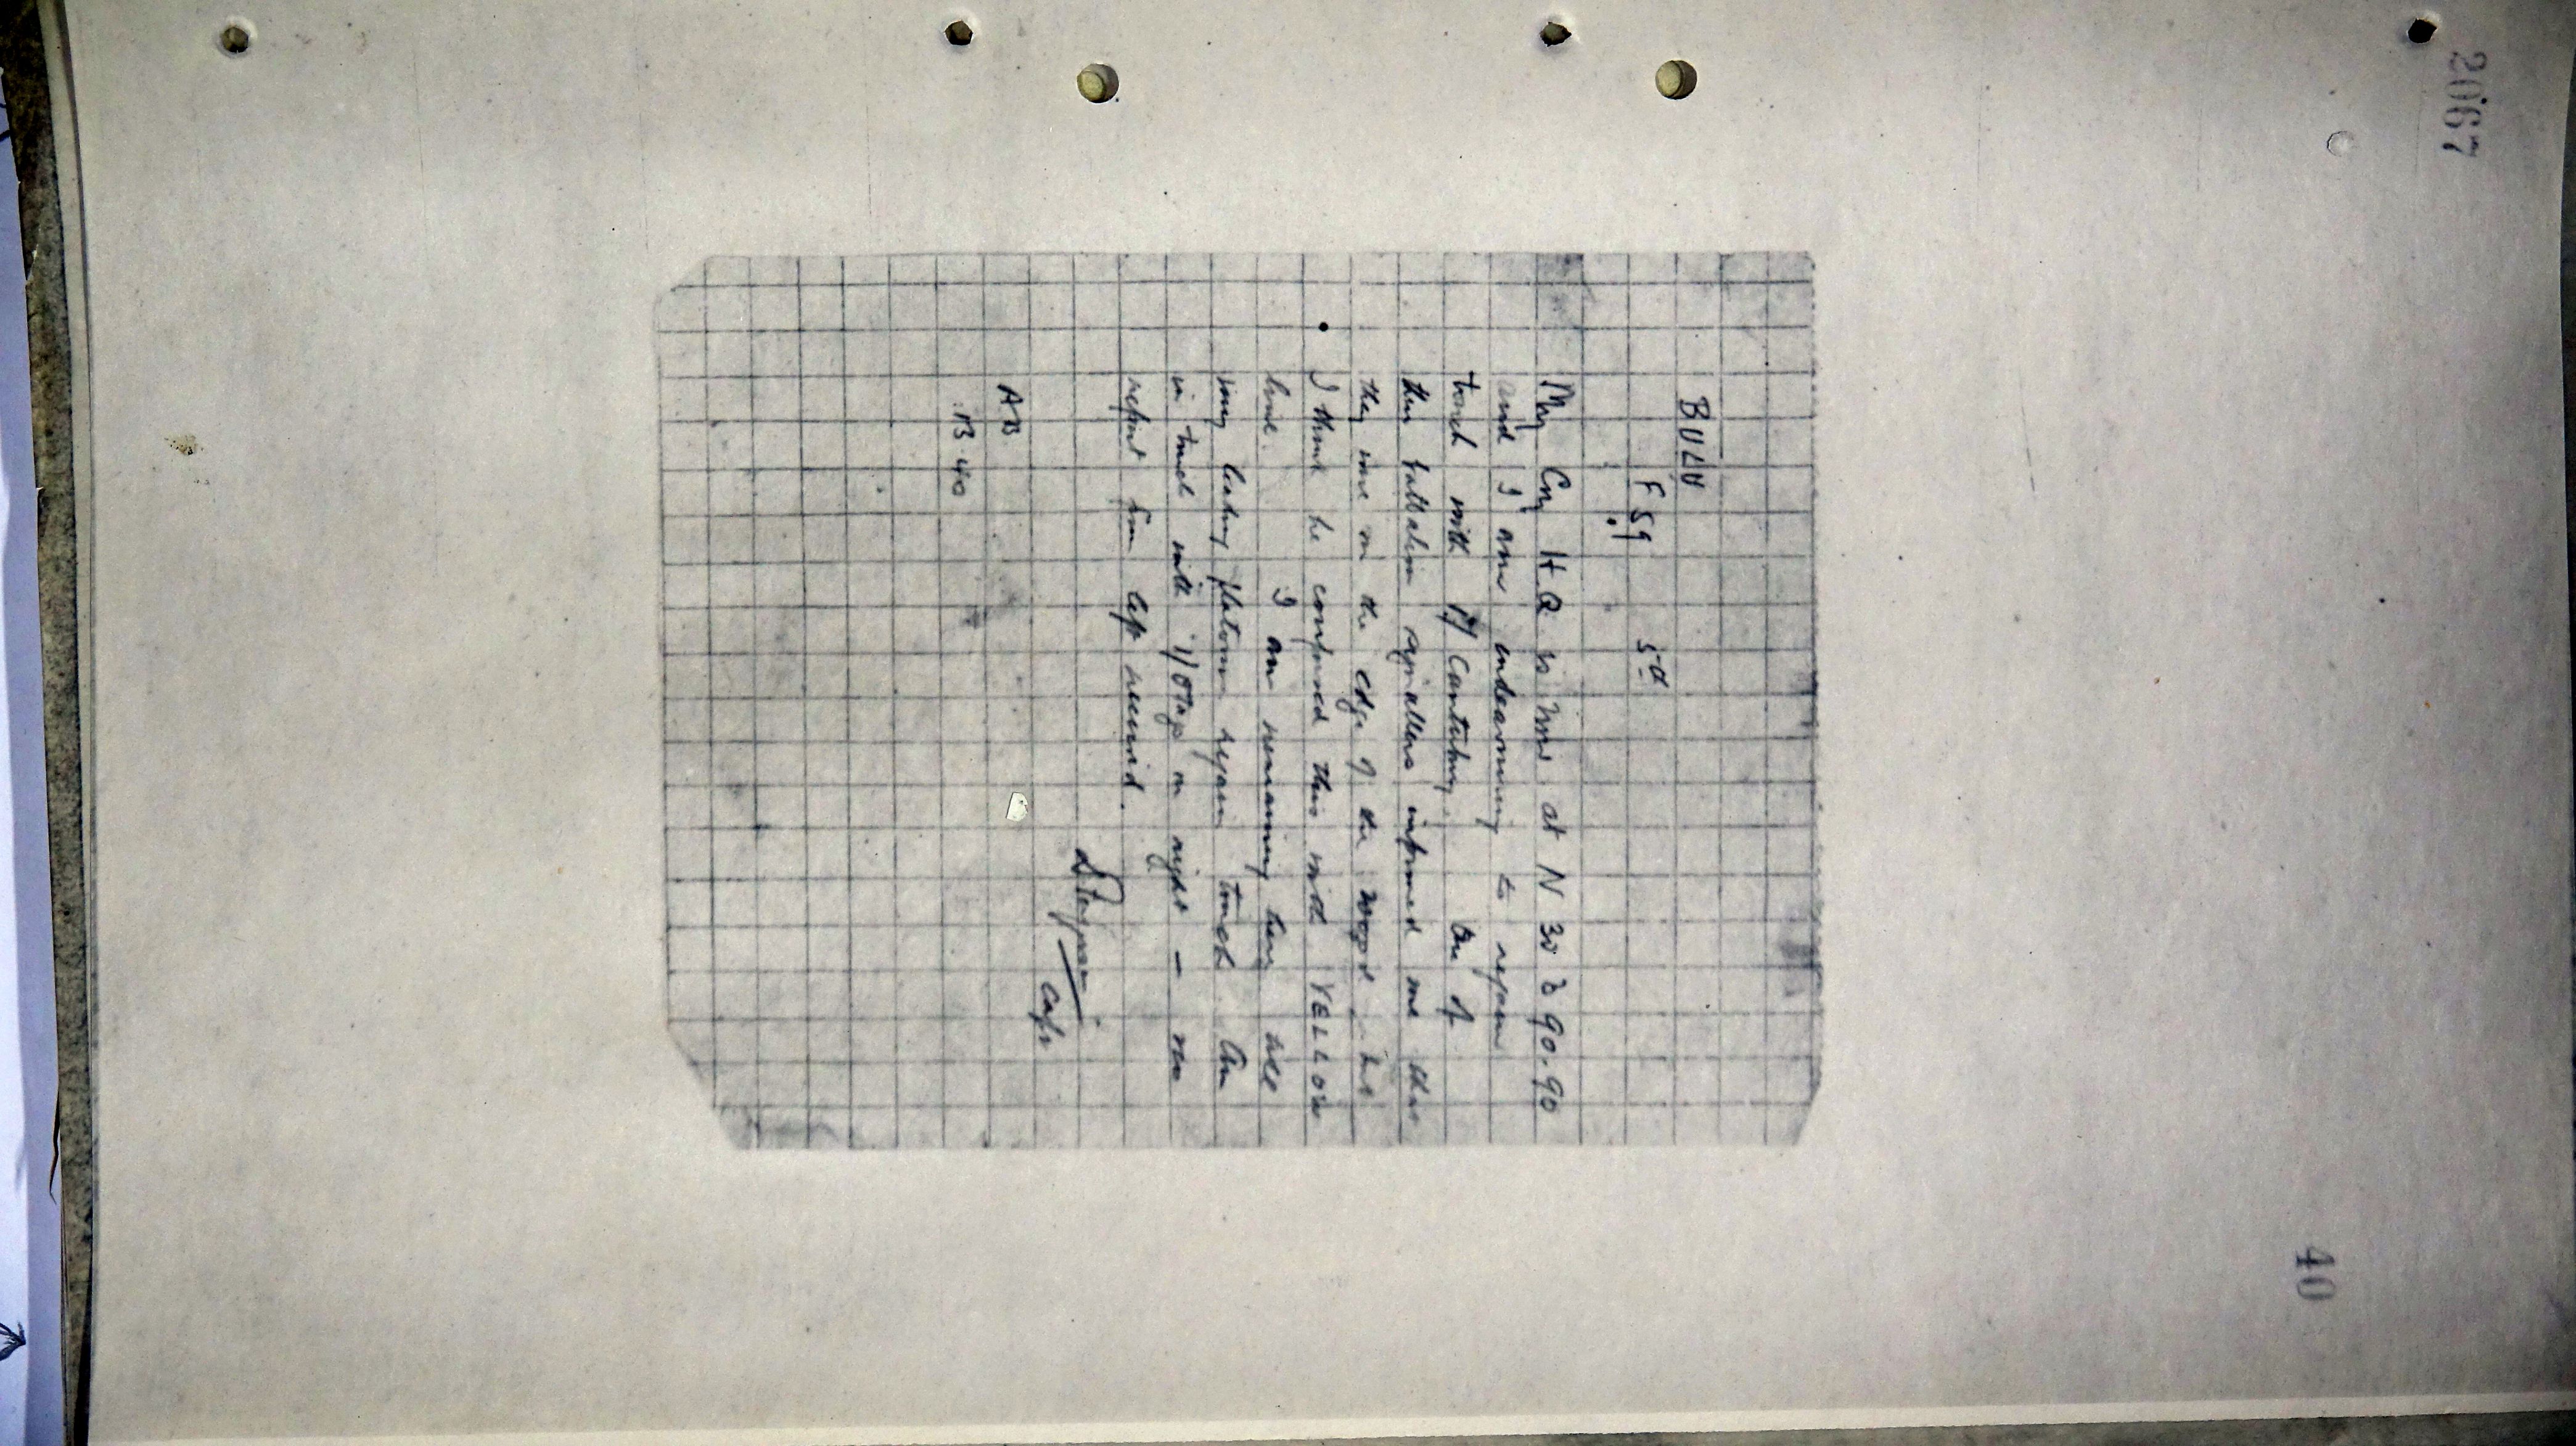 2067
40
BULU
F 59 5th
My Coy H.Q. is now at N 30 b 90.90
and I am endeavouring to regain
touch with 1/ Canterbury. One of
their battalion signallers informed me that
they were on the edge of the wood, but
I think he confused this with YELLOW
line. I am remaining here till
my leading platoons regain touch. Am
in touch with 1/Otago on right - no
report from left received.
Capt
AB
13 40